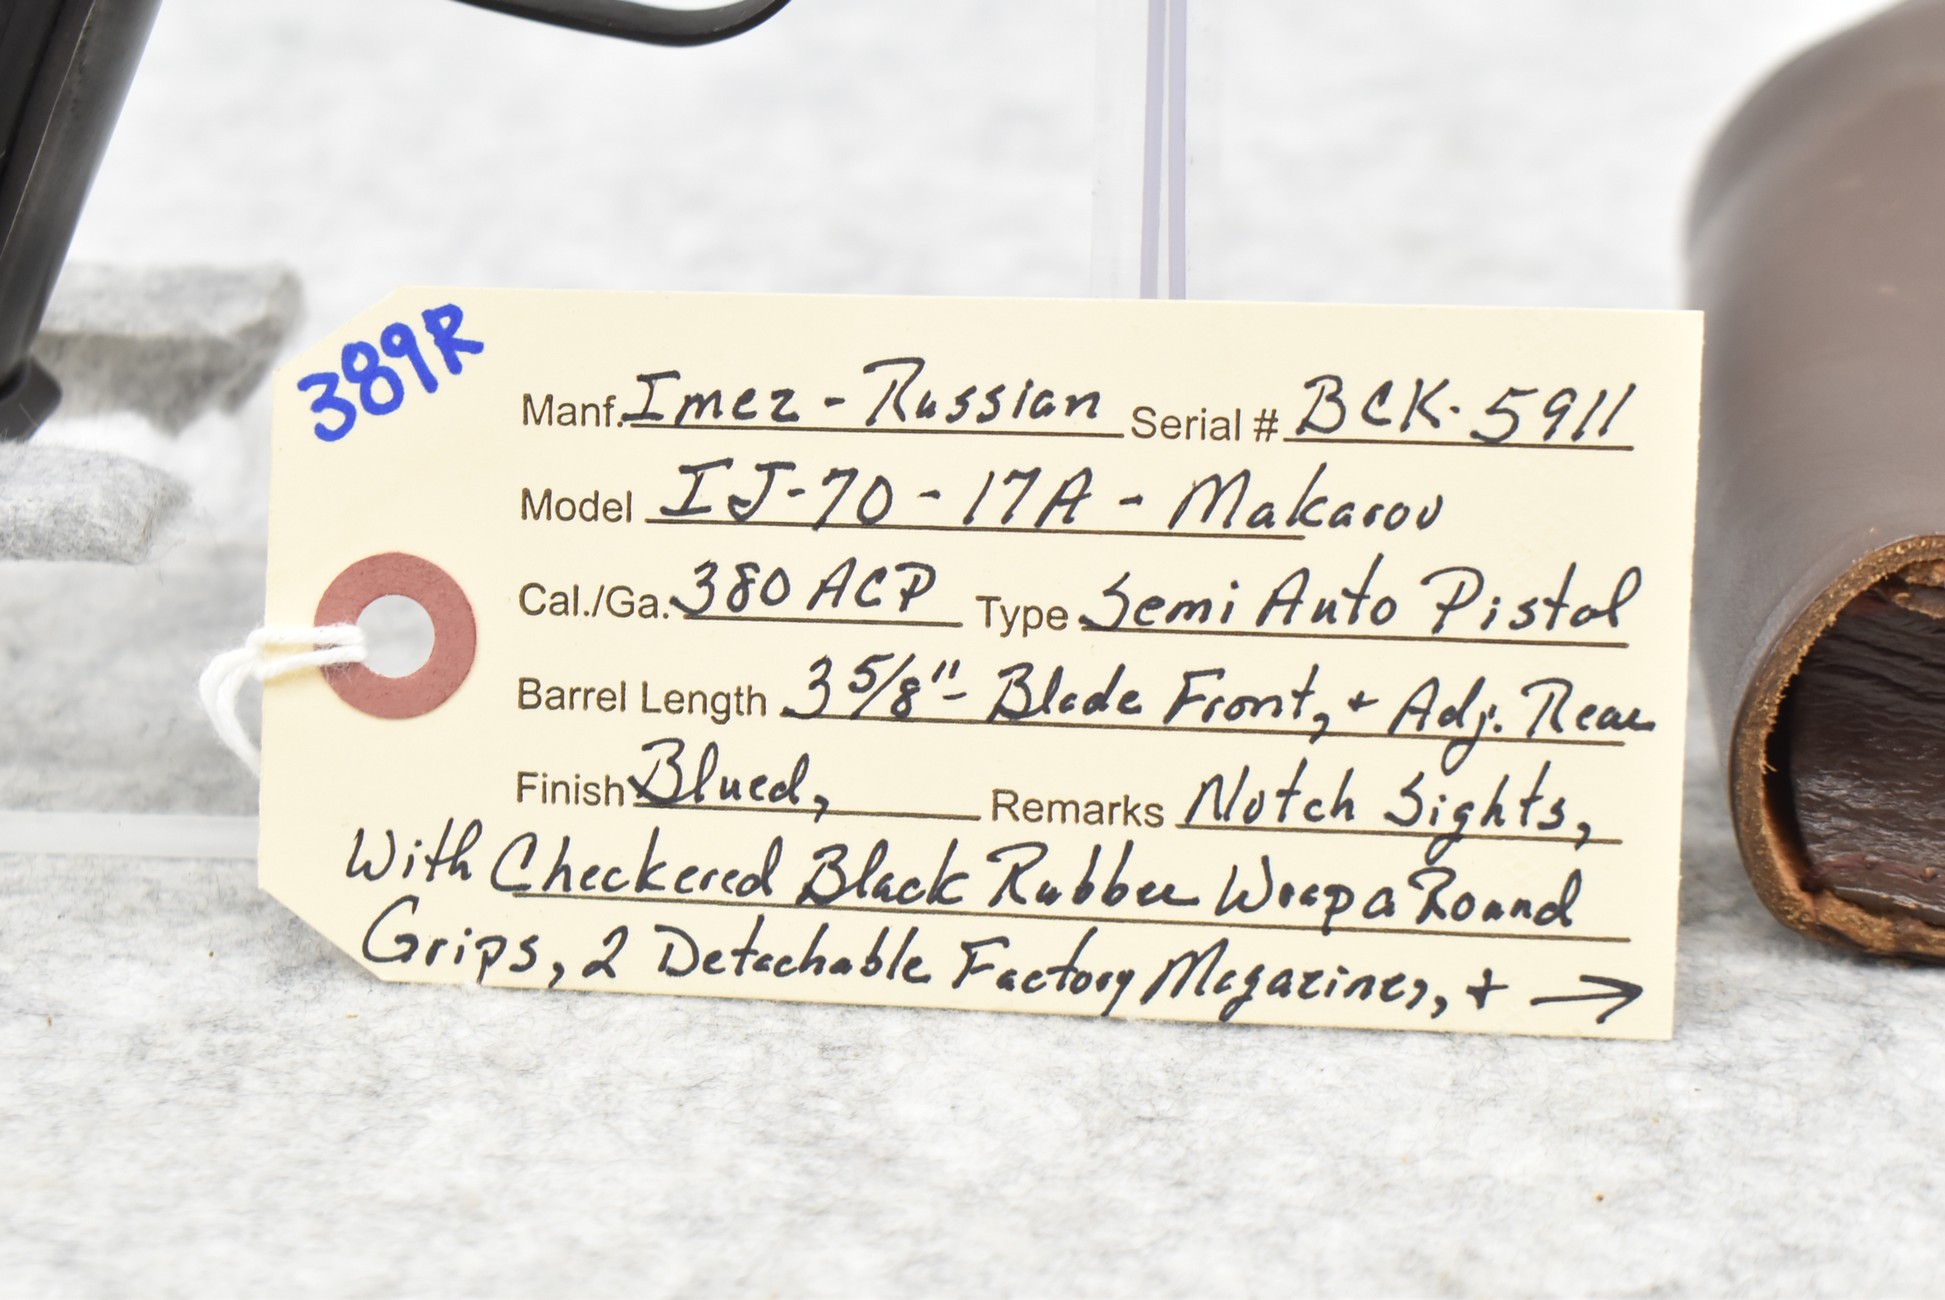 389R
Manf. Imez - Russian Serial # BCK-5911
Model IJ-70-17A - Makarov
Cal./Ga. 380 ACP Type Semi Auto Pistol
Barrel Length 3 5/8" - Blade Front, + Adj. Rear
Finish Blued, Remarks Notch Sights,
With Checkered Black Rubber Wrap a Round
Grips, 2 Detachable Factory Magazines, + →